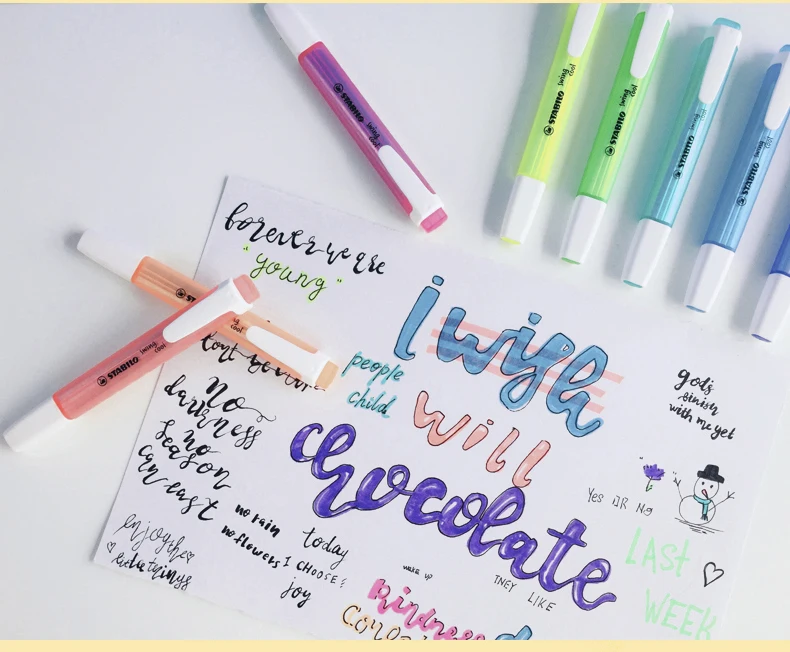 STABILO swing cool
STABILO swing cool
STABILO swing cool
STABILO swing cool
STABILO swing cool
STABILO swing cool
cool
forever we are
"young"
i wish
people
child
will
chocolate
no
darkness
no
season
can
last
enjoy the
little things
no rain
no flowers
today
I CHOOSE
joy
wake up
kindness
THEY LIKE
god's
finish
with me yet
Yes OR No
LAST
WEEK